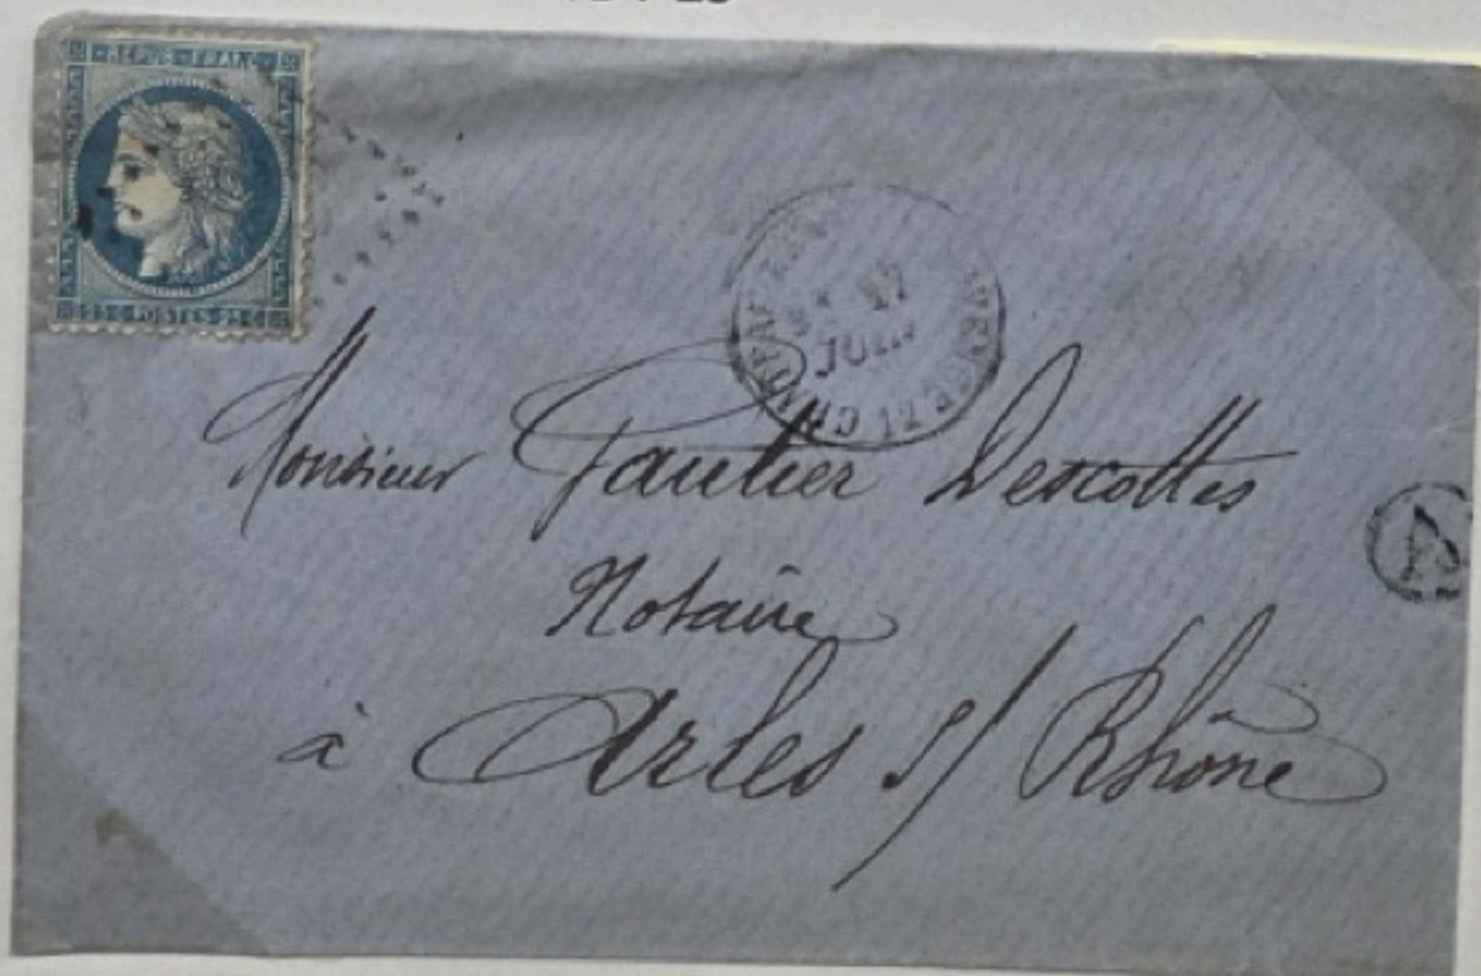 REPUB FRANC
25 C POSTES 25 C
17
JUIN
71
Monsieur Gautier Descottes
Notaire
A
à Arles s/ Rhône